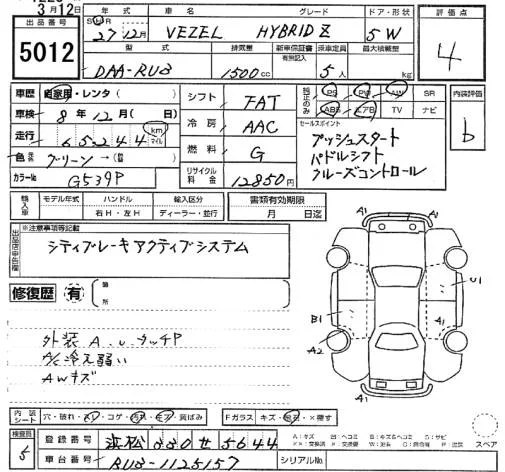 3月12日
出品番号
5012
年式 車名 グレード ドア・形状
27年12月 VEZEL HYBRID Z 5W
型式 排気量 新車保証書 有無記入 乗車定員 最大積載量
DAA-RU3 1500cc 5人 kg
評価点
4
内装評価
b
車歴 自家用・レンタ( )
車検 8年12月( 日)
走行 65244 km マイル
色 グリーン→(
カラーNo G539P
シフト FAT
冷房 AAC
燃料 G
リサイクル料金 12850円
純正のみ
PS PW AW SR
ABS エアB TV ナビ
セールスポイント
プッシュスタート
パドルシフト
クルーズコントロール
輸入車 モデル年式 ハンドル 輸入区分
右H・左H ディーラー・並行
書類有効期限
月 日迄
出品店申告欄
※注意事項等記載
シティブレーキアクティブシステム
修復歴 有 箇所
外装A.UタッチP
A/C冷え弱い
AWキズ
A1
A1
U1
B1
A2
A1
A1
内装シート 穴・破れ・スリ・コゲ・汚れ・キズ・黄ばみ
Fガラス キズ・飛石・×要す
検査員 5
登録番号 浜松330せ5644
車台番号 RU3-1125157
シリアルNo.
A:キズ U:ヘコミ B:キズ&ヘコミ S:サビ
スペア